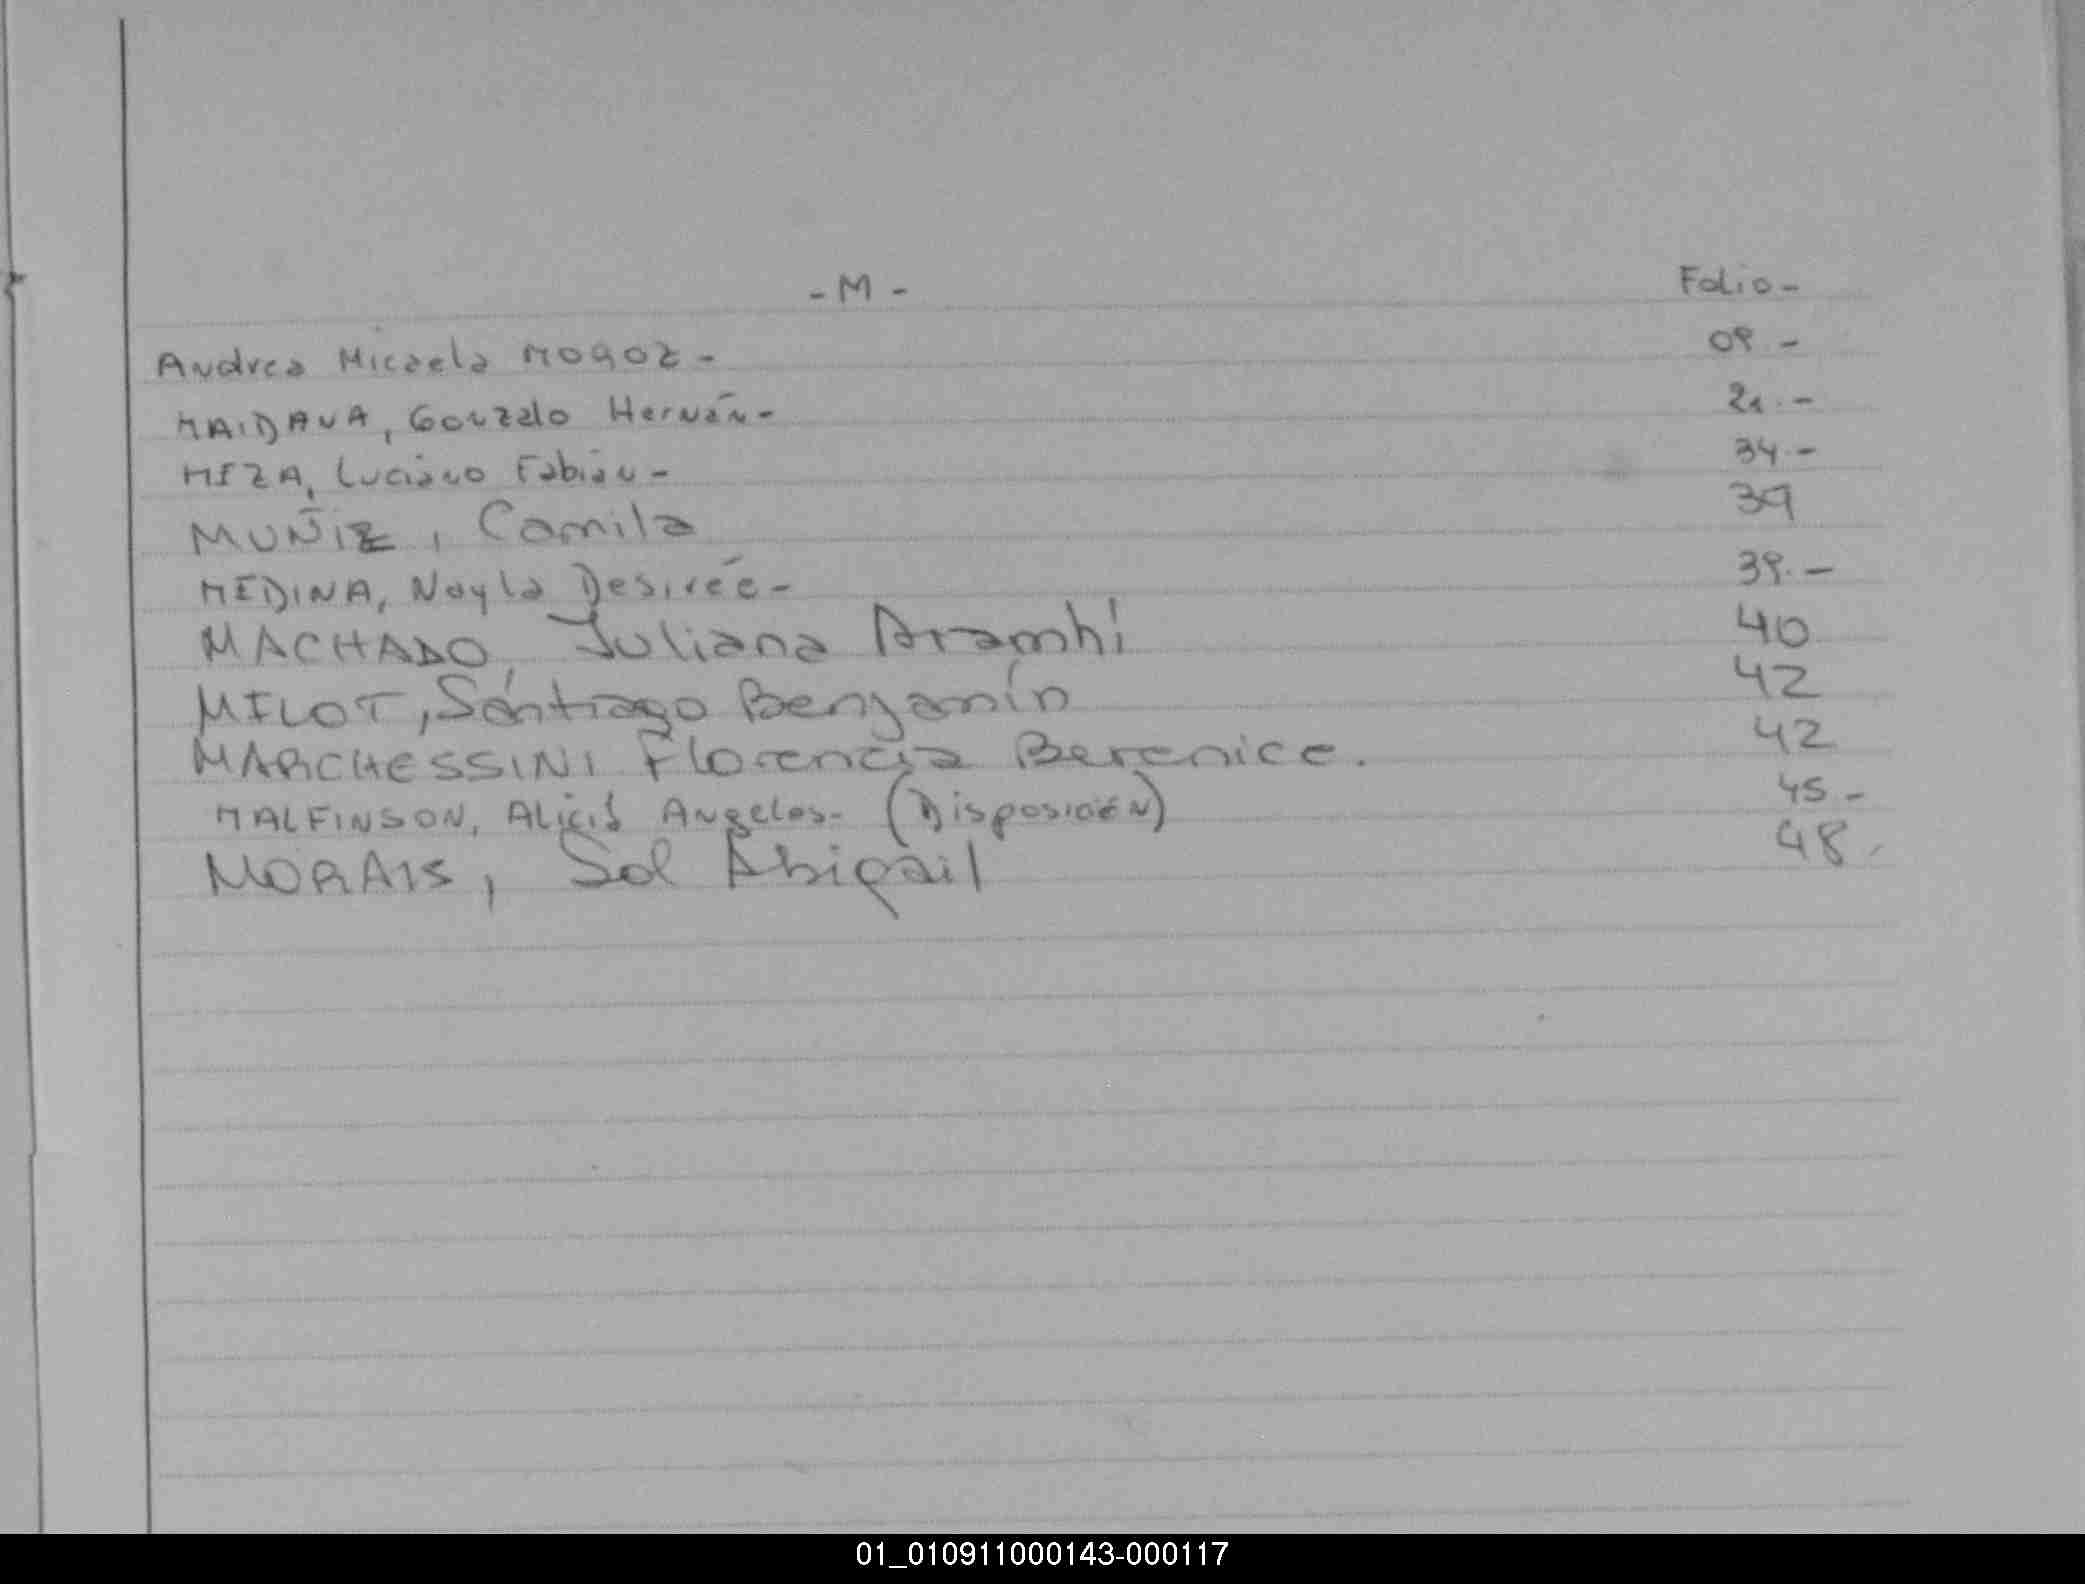 - M - Folio -
Andrea Micaela MOGOZ - 09 -
MAIDANA, Gonzalo Hernán - 21. -
MEZA, Luciano Fabián - 34. -
MUÑIZ, Camila 39
MEDINA, Nayla Desirée - 39. -
MACHADO, Juliana Aramhi 40
MILOT, Santiago Benjamín 42
MARCHESSINI Florencia Berenice. 42
MALFINSON, Alicia Angeles - (Disposición) 45 -
MORAIS, Sol Abigail 48.
01_010911000143-000117